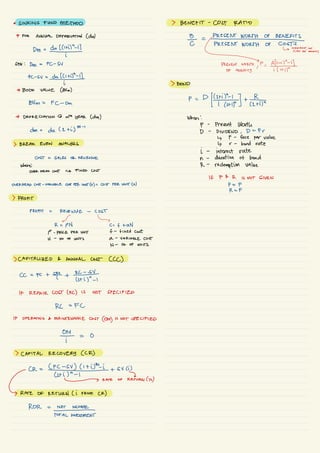 • SINKING FUND METHOD
* FOR ANNUAL DEPRECIATION (dm)
Dm = dm [(1+i)ⁿ-1] / i
SEE: Dm = FC-SV
FC-SV = dm [(1+i)ⁿ-1] / i
* BOOK VALUE (BVm)
BVm = FC - Dm
* DEPRECIATION @ mth YEAR (dm)
> BREAK EVEN ANALYSIS
COST = SALES OR REVENUE
when:
> PROFIT
PROFIT = REVENUE - COST
R = PN
C = f + vN
P - PRICE PER UNIT
f - FIXED COST
N - no OF UNITS
v - VARIABLE COST
N - no OF UNITS
> CAPITALIZED & ANNUAL COST (CCC)
CC = FC + OM / i + RC - SV / (1+i)ⁿ-1
IF REPAIR COST (RC) IS NOT SPECIFIED
RC = FC
IF OPERATING & MAINTENANCE COST (OM) IS NOT SPECIFIED
OM / i = 0
> CAPITAL RECOVERY (CR)
CR = (FC-SV)(1+i)ⁿ i / (1+i)ⁿ-1 + SV(i)
RATE OF RETURN (%)
> RATE OF RETURN (i FROM CR)
ROR = NET INCOME / TOTAL INVESTMENT
> BENEFIT - COST RATIO
B / C = PRESENT WORTH OF BENEFITS / PRESENT WORTH OF COSTS
PRESENT WORTH OF ANNUITY
P = A[(1+i)ⁿ-1] / i(1+i)ⁿ
> BOND
P = D [(1+i)ⁿ-1 / i(1+i)ⁿ] + R / (1+i)ⁿ
when:
P - Present Worth
D - DIVIDEND, D = Fr
F - face par value
r - bond rate
i - interest rate
n - duration of bond
R - redemption value
IF P & R IS NOT GIVEN
P = F
R = F